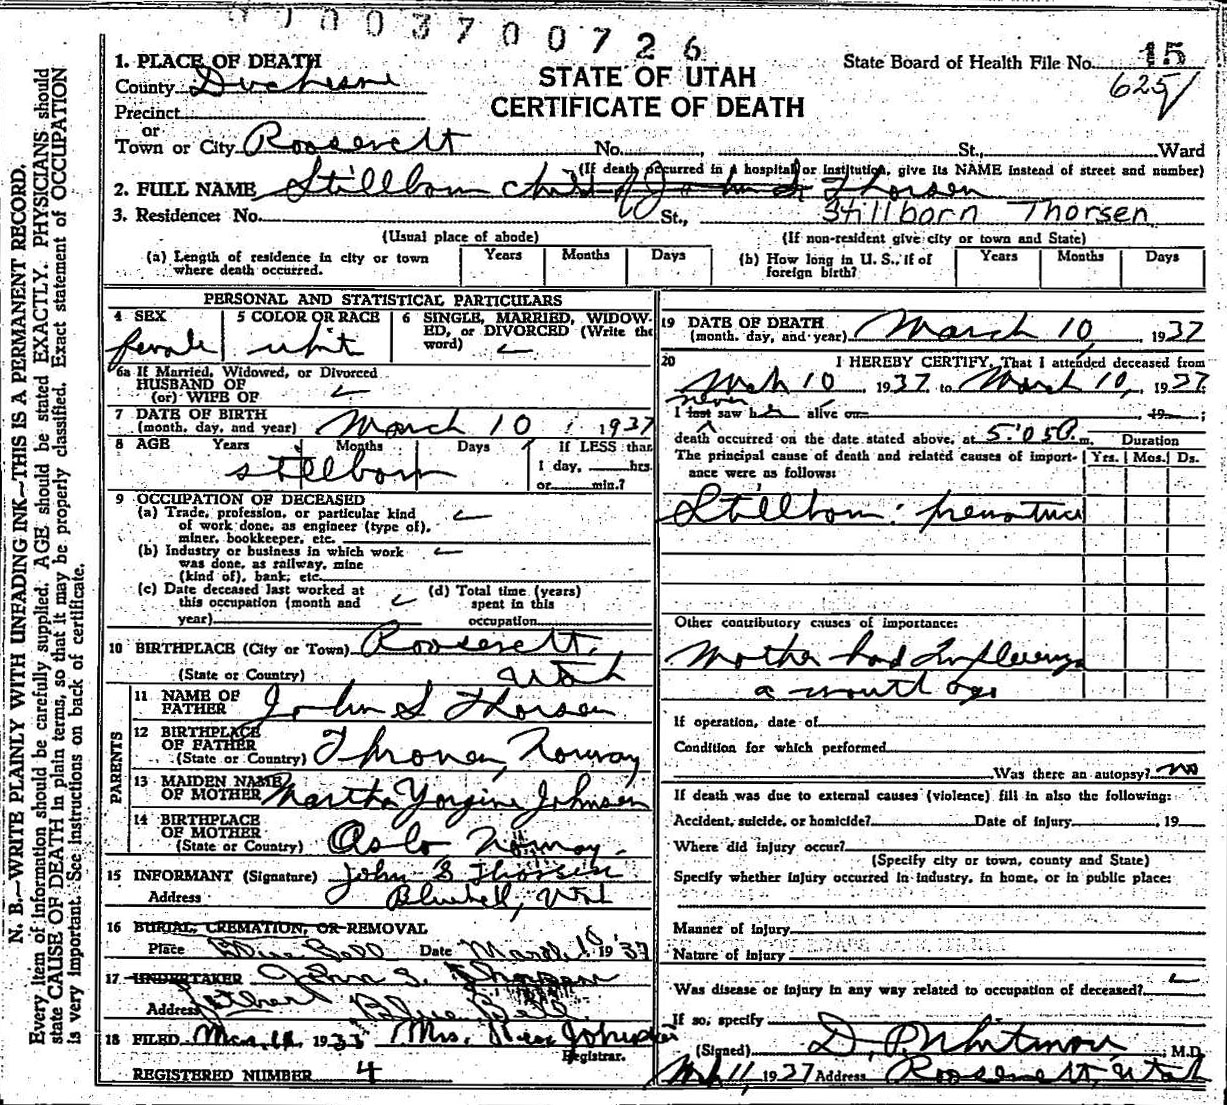 00003700726
N. B.—WRITE PLAINLY WITH UNFADING INK—THIS IS A PERMANENT RECORD.
Every item of information should be carefully supplied. AGE should be stated EXACTLY. PHYSICIANS should
state CAUSE OF DEATH in plain terms, so that it may be properly classified. Exact statement of OCCUPATION
is very important. See instructions on back of certificate.
STATE OF UTAH
CERTIFICATE OF DEATH
State Board of Health File No. 15
625/
1. PLACE OF DEATH
County Duchesne
Precinct
or
Town or City Roosevelt No. , St., Ward
(If death occurred in a hospital or institution, give its NAME instead of street and number)
2. FULL NAME Stillborn child of John S. Thorsen
3. Residence: No. St., Stillborn Thorsen
(Usual place of abode) (If non-resident give city or town and State)
(a) Length of residence in city or town where death occurred. Years Months Days
(b) How long in U. S., if of foreign birth? Years Months Days
PERSONAL AND STATISTICAL PARTICULARS
4 SEX female
5 COLOR OR RACE whit
6 SINGLE, MARRIED, WIDOWED, or DIVORCED (Write the word)
6a If Married, Widowed, or Divorced
HUSBAND OF
(or) WIFE OF
7 DATE OF BIRTH
(month, day, and year) March 10, 1937
8 AGE Years Months Days If LESS than
stillborn 1 day, hrs.
or min.?
9 OCCUPATION OF DECEASED
(a) Trade, profession, or particular kind
of work done, as engineer (type of),
miner, bookkeeper, etc.
(b) Industry or business in which work
was done, as railway, mine
(kind of), bank, etc.
(c) Date deceased last worked at
this occupation (month and
year)
(d) Total time (years)
spent in this
occupation
10 BIRTHPLACE (City or Town) Roosevelt,
(State or Country) Utah
PARENTS
11 NAME OF
FATHER John S Thorsen
12 BIRTHPLACE
OF FATHER
(State or Country) Norway
13 MAIDEN NAME
OF MOTHER Martha Yorgine Johnsen
14 BIRTHPLACE
OF MOTHER
(State or Country) Oslo Norway.
15 INFORMANT (Signature) John S Thorsen
Address Bluebell, Utah
16 BURIAL, CREMATION, OR REMOVAL
Place Blue Bell Date March 10 19 37
17 UNDERTAKER John S. Thorsen
Father
Address Blue Bell
18 FILED Mar. 19 Mrs.
Registrar.
REGISTERED NUMBER 4
19 DATE OF DEATH
(month, day, and year) March 10, 1937
20 I HEREBY CERTIFY, That I attended deceased from
Mch 10, 1937 to March 10, 1937
never
I last saw her alive on 19 ;
death occurred on the date stated above, at 5:05 P. m.
Duration
The principal cause of death and related causes of importance were as follows: Yrs. Mos. Ds.
Stillborn: premature
Other contributory causes of importance:
Mother had Influenza
a month ago
If operation, date of
Condition for which performed
Was there an autopsy? no
If death was due to external causes (violence) fill in also the following:
Accident, suicide, or homicide? Date of injury , 19
Where did injury occur?
(Specify city or town, county and State)
Specify whether injury occurred in industry, in home, or in public place:
Manner of injury
Nature of injury
Was disease or injury in any way related to occupation of deceased?
If so, specify
(Signed) D. P. Whitmore, M.D.
Mch 11, 1937 Address Roosevelt, Utah